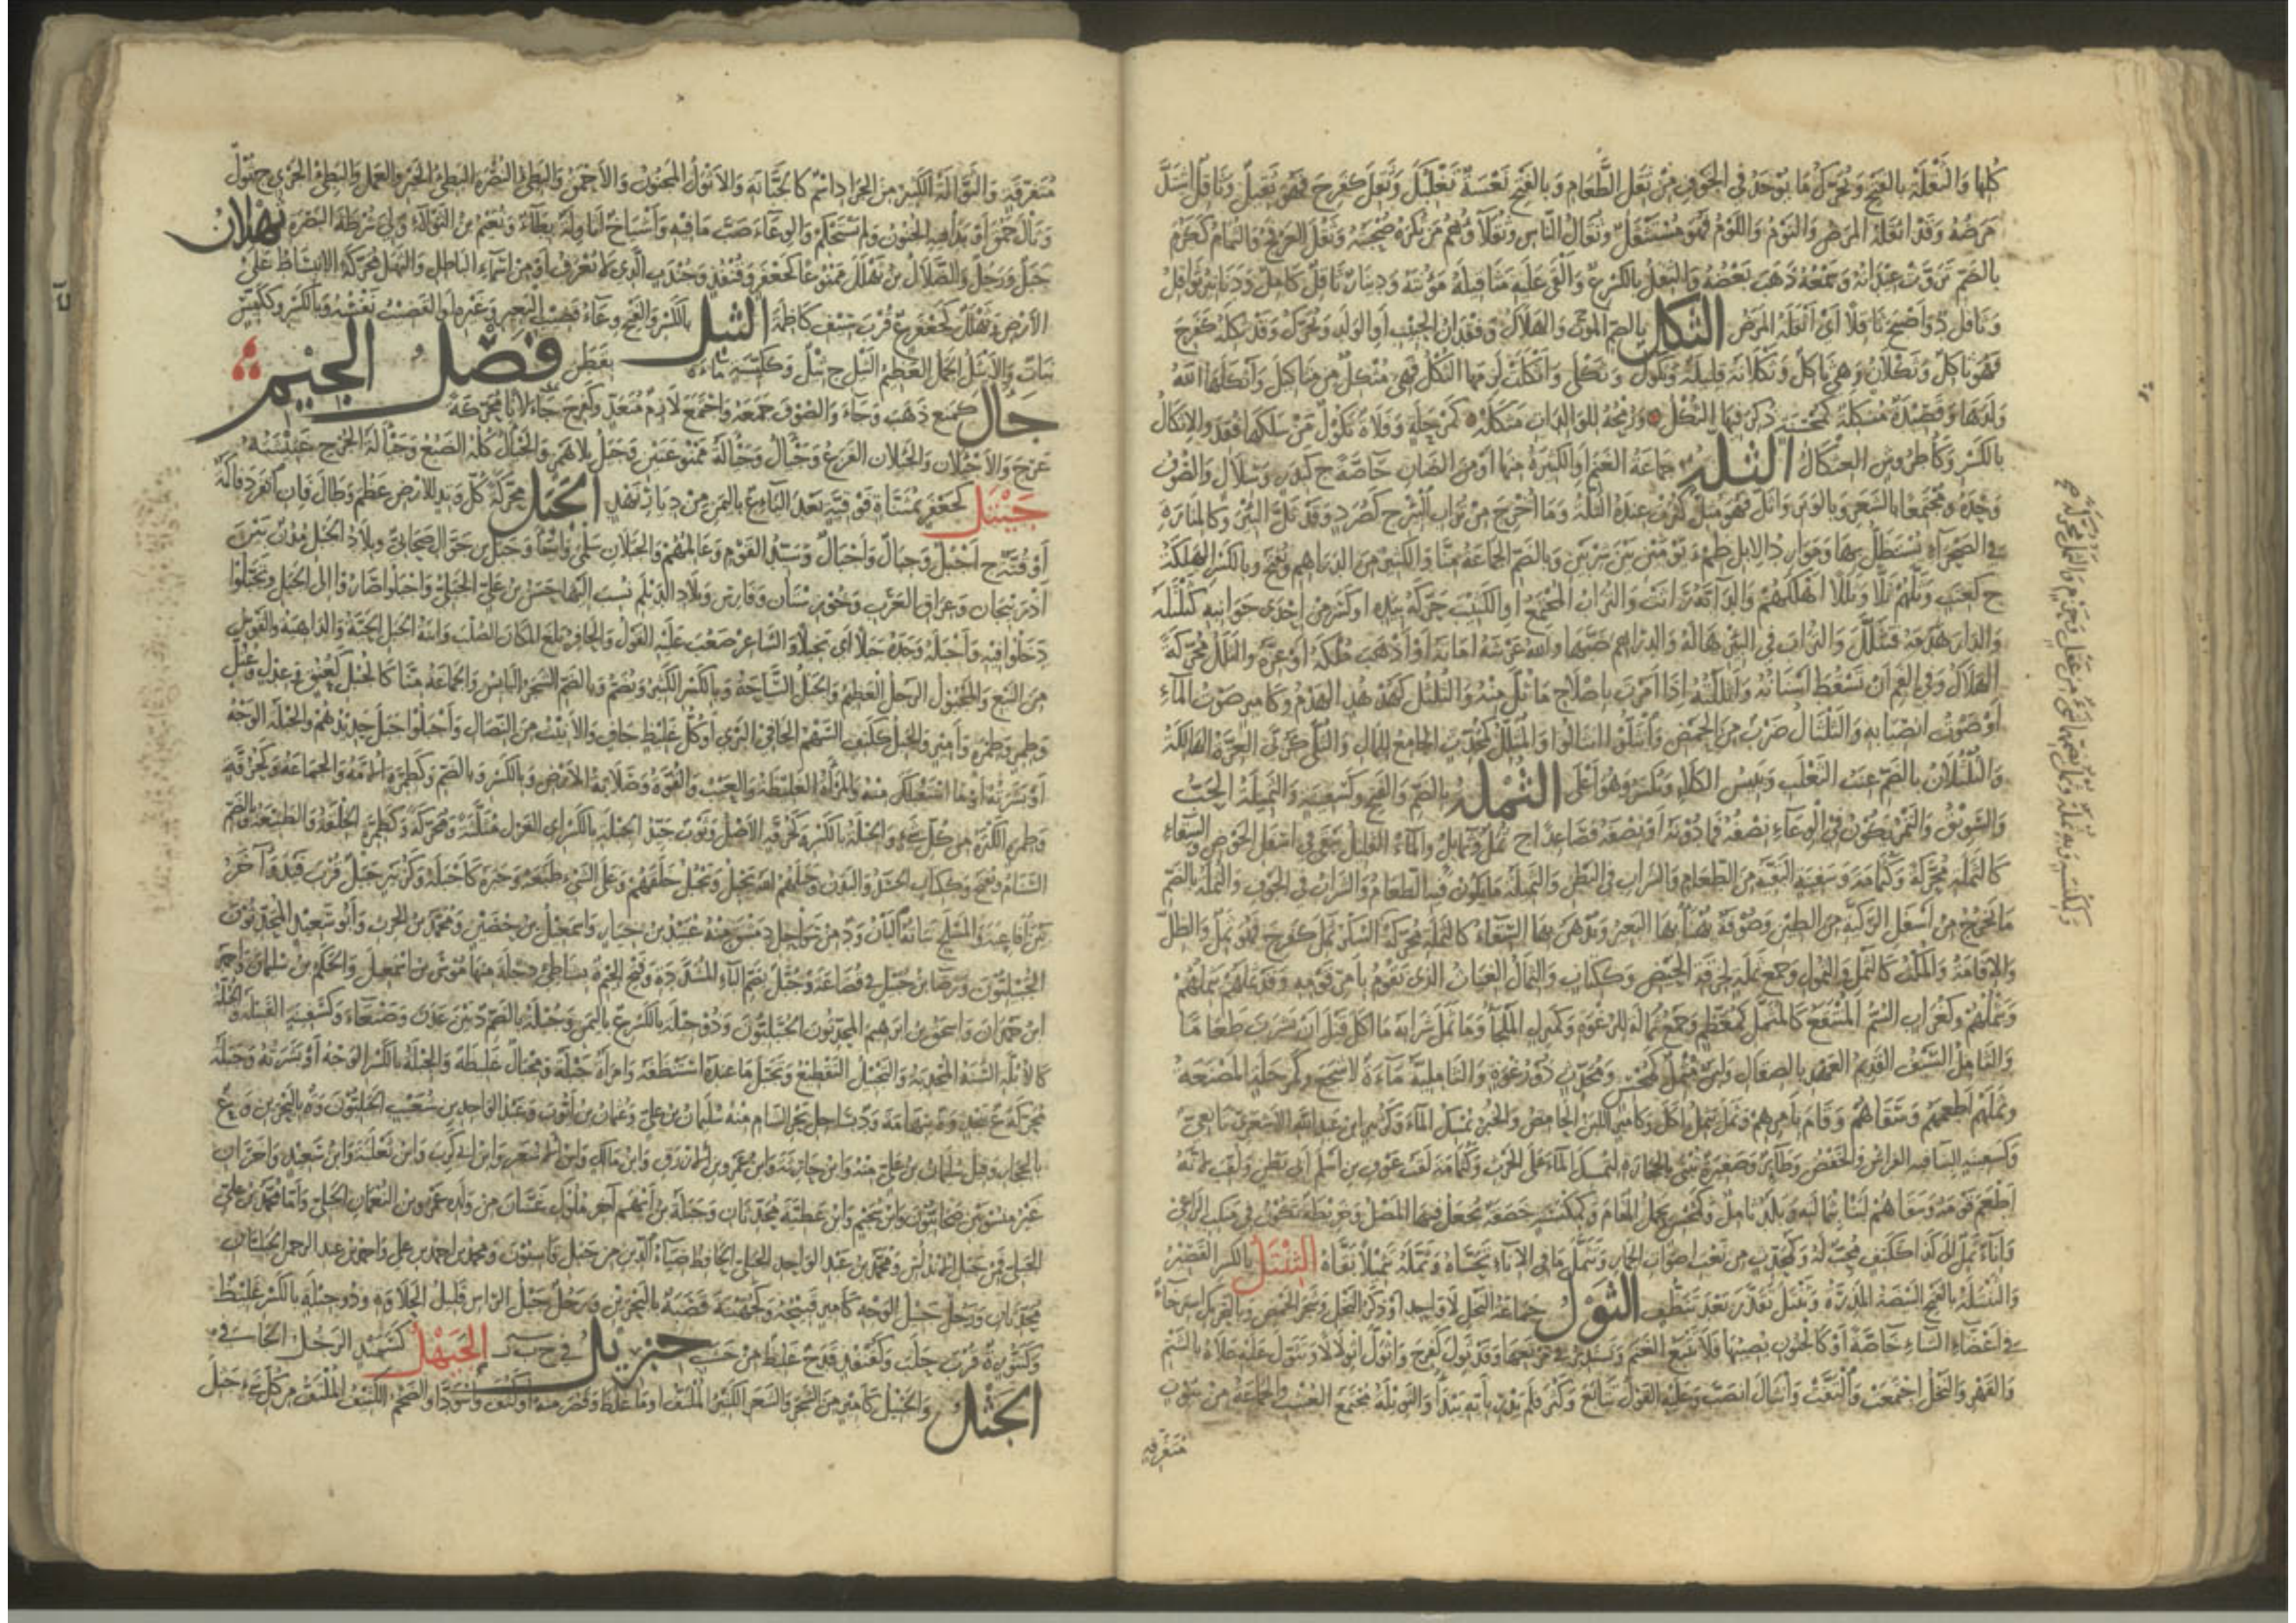 كلها والثقلة بالفتح ويحرك ما يوجد في الجوف من ثقل الطعام وبالفتح نعسة تغلبك وثقل كفرح فهو ثقيل وثاقل اشتد
مرضه وقد اثقله المرض والنوم واللوم فهو مستثقل وثقال الناس وثقلاؤهم من تكره صحبته وثقل العرفج والثمام ككرم
بالضم تروت عيدانه وسمعه ذهب بعضه والثقل بالكسر ع والقى عليه مثاقيله مؤنته ودينار ثاقل كامل ودنانير ثواقل
وثاقل د واصبح ثاقلا اي اثقله المرض الثكل بالضم الموت والهلاك وفقدان الحبيب او الولد ويحرك وقد ثكله كفرح
فهو ثاكل وثكلان وهي ثاكل وثكلانة قليلة وثكول وثكلى واثكلت لزمها الثكل فهي مثكل من مثاكيل واثكلها الله
ولدها وقصيدة مثكلة كمحسنة ذكر فيها الثكل ورمحه للوالدات مثكلة كمرحلة وفلاة ثكول من سلكها فقد والاثكال
بالكسر وكاطروش العثكال الثلة جماعة الغنم او الكثيرة منها او من الضان خاصة ج كبدر وسلال والصوف
وحده ومجتمعا بالشعر وبالوبر واثل فهو مثل كثرت عنده الثلة وما اخرج من تراب البئر ج كصرد وقد ثل البئر وكالمنارة
في الصحراء يستظل بها وموارد الابل ظمء يومين بين شربين وبالضم الجماعة منا والكثير من الدراهم ويفتح وبالكسر الهلكة
ج كعنب وثلهم ثلا وثللا اهلكهم والدابة راثت والتراب المجتمع او الكثيب حركه بيده او كسر من احدى جوانبه كثلثله
والدار هدمه فتثلل والتراب في البئر هاله والدراهم صبها والله عرشه اماته او اذهب ملكه او عزه والثلل محركة
الهلاك وفي الفم ان تسقط اسنانه واثللته اذا امرت باصلاح ما ثل منه والثلثل كهدهد الهدم وكامير صوت الماء
او صوت انصبابه والثلثال ضرب من الحمض وانثلوا انثالوا والمثلل كمحدث الجامع للمال والثلى كربى العزة الهالكة
والثلثلان بالضم عنب الثعلب ويبيس الكلا ويكسر وهو اعلى الثملة بالضم والفتح وكسفينة والثميلة الحب
والسويق والتمر يكون في الوعاء نصفه فما دونه او نصفه فصاعدا ج ثمل وثمائل والماء القليل يبقى في اسفل الحوض والسقاء
كالثملة محركة وكثمامة وسفينة البقية من الطعام والشراب في البطن والثميلة ما يكون فيه الطعام والشراب في الجوف والثملة بالضم
ما يخرج من اسفل الركية من الطين وصوفة يهنا بها البعير ويدهن بها السقاء كالثملة محركة السكر ثمل كفرح فهو ثمل والظل
والاقامة والمكث كالثمل والثمول وجمع ثملة لخرقة الحيض وككتاب والثمال الغياث الذي يقوم بامر قومه وقد ثملهم يثملهم
ويثملهم وكغراب السم المنقع كالمثمل كمعظم وجمع ثمالة للرغوة وكمنزل الملجا وما ثمل شرابه ما اكل قبل ان يشرب طعاما
والثامل السيف القديم العهد بالصقال ولبن مثمل كمحسن ومحدث ذو رغوة والثاملية ماءة لاشجع وكمرحلة المصنعة
وثملهم اطعمهم وسقاهم وقام بامرهم وثمل يثمل اكل وكامير اللبن الحامض والخبز يمسك الماء وكزبير ابن عبد الله الاشعري تابعي
وكسفينة البناء فيه الغراس والخفض وطائر وصغيرة تبنى بالحجارة لتمسك الماء على الحرث وكثمامة لقب عوف بن اسلم ابي بطن ولقب لانه
اطعم قومه وسقاهم لبنا بثمالته وبلد ثامل وكمحسن يحمل المقام وكمكنسة خصفة يجعل فيها المصل وخريطة تكون في منكب الراعي
وانا ثمل الى كذا ككتف محب له وكمحدث من نعت اصوات الحمار وتثمل ما في الاناء تحساه وثمله تثميلا بقاه الثنتل بالكسر القصير
والثنتلة بالفتح البيضة المذرة وثنتل تقذر بعد تنظف الثول جماعة النحل لا واحد لها او ذكر النحل وشجر الحمض وبالتحريك استرخاء
في اعضاء الشاء خاصة او كالجنون يصيبها فلا تتبع الغنم وتستدير في مرتعها وقد ثول كفرح واثول اثولالا وتثول عليه علاه بالشتم
والقهر والنحل اجتمعت والتفت وانثال انصب وعليه القول تتابع وكثر فلم يدر بايه يبدأ والثويلة مجتمع العشب والجماعة من بيوت
متفرقة
متفرقة والثوالة الكثير من الجراد اسم كالجبانة والاثول المجنون والاحمق والبطيء النصرة البطيء الخير والعمل والبطيء الجري ج ثول
وثال حمق او بدا فيه الجنون ولم يستحكم والوعاء صب ما فيه واشباح اثاولة بطاء ونعيم بن الثولاء ولي شرطة البصرة ثهلان
جبل ورجل والضلال بن ثهلل ممنوعا كجعفر وقنفذ وجندب الذي لا يعرف او من اسماء الباطل والثهل محركة الانبساط على
الارض وثهلل كجعفر ع قرب سيف كاظمة الثيل بالكسر والفتح وعاء قضيب البعير وغيره او القضيب نفسه وبالكسر وككيس
نبات والاثيل الجمل العظيم الثيل ج ثيل وككيسة ماءة بقطن فصل الجيم
جأل كمنع ذهب وجاء والصوف جمعه واجتمع لازم متعد وكفرح جالانا محركة
عرج والاجئلال والجئلال الفزع وجيأل وجيألة ممنوعتين وجيل بلا همز والجيأل كله الضبع وجيألة الجرح غثيثته
جيتل كجعفر بمثناة فوقية بعد الياء ع باليمن من ديار نهد الجبل محركة كل وتد للارض عظم وطال فان انفرد فاكمة
او قنة ج اجبل وجبال واجبال وسيد القوم وعالمهم والجبلان سلمى واجأ وجبل بن جوال صحابي وبلاد الجبل مدن بين
اذربيجان وعراق العرب وخوزستان وفارس وبلاد الديلم نسب اليها حسن بن علي الجبلي واجبلوا صاروا الى الجبل وتجبلوا
دخلوا فيه واجبله وجده جبلا اي بخيلا والشاعر صعب عليه القول والحافر بلغ المكان الصلب وابنة الجبل الحية والداهية والقوس
من النبع والمجبول الرجل العظيم والجبل الساحة وبالكسر الكثير ويضم وبالضم الشجر اليابس والجماعة منا كالجبل كعنق وعدل وعتل
وطمر وطمرة وامير والجبل ككتف السهم الجافي البري او كل غليظ جاف والانيث من النصال واجبلوا جبل حديدهم والجبلة الوجه
او بشرته او ما استقبلك منه والمرأة الغليظة والعيب والقوة وصلابة الارض وبالكسر وبالضم وكطمرة الامة والجماعة وكحزقة
وطمرة الكثرة من كل شيء والجبلة بالكسر وكحزقة الاصل وثوب جيد الجبلة بالكسر اي الغزل مثلثة ومحركة وكطمرة الخلقة والطبيعة وبالضم
السنام ويفتح وككتاب الجسد والبدن وجبلهم الله يجبل ويجبل خلقهم وعلى الشيء طبعه وجبره كاجبله وكزبير جبل قرب فيد وآخر
بين افاعية والمسلح نباته البان ود من سواحل دمشق منه عبيد بن خيار واسمعيل بن حصين ومحمد بن الحرث وابو سعيد المحدثون
الجبيليون ورضا بن جبيل في قضاعة وجبل بضم الباء المشددة وفتح الجيم ة بشاطئ دجلة منها موسى بن اسمعيل والحكم بن سليمان واحمد
ابن حمدان واسحق بن ابراهيم المحدثون الجبليون وذو جبلة بالكسر ع باليمن وجبلة بالضم د بين عدن وصنعاء وكسفينة القبيلة والجبلة
كالابلة السنة المجدبة والتجبيل التقطيع وتجبل ما عنده استنظفه وامرأة جبلة ومجبال غليظة والجبلة بالكسر الوجه او بشرته وجبلة
محركة ع بنجد وة بتهامة ود بساحل بحر الشام منه سليمان بن علي وعثمان بن ايوب وعبد الواحد بن شعيب الجبليون وة بالبحرين و ع
بالحجاز وقيل سليمان بن علي منه وابن حارثة وابن عمرو بن الازرق وابن مالك وابن الاشعر وابن ابي كرب وابن ثعلبة وابن سعيد وآخران
غير منسوبين صحابيون وابن سحيم وابن عطية محدثان وجبلة بن ايهم آخر ملوك غسان من ولد عمرو بن النعمان الجبلي واما محمد بن علي
الجبلي فمن جبل الاندلس ومحمد بن عبد الواحد الجبلي الحافظ ضياء الدين من جبل قاسيون ومحمد بن احمد بن علي واحمد بن عبد الرحمن الجبليان
محدثان ورجل جبيل الوجه كامير قبيحه وكجهينة قصبة بالبحرين ورجل جبل الراس قليل الحلاوة وذو جبلة بالكسر غليظ
وكتنورة ة قرب حلب وكقنفذ قدح غليظ من خشب جبريل في ج ب ر الجبهل كسميدع الرجل الجافي
الجثل والجثيل كامير من الشجر والشعر الكثير الملتف او ما غلظ وقصر منه او كثف واسود او الضخم الكثيف الملتف من كل شيء جثل